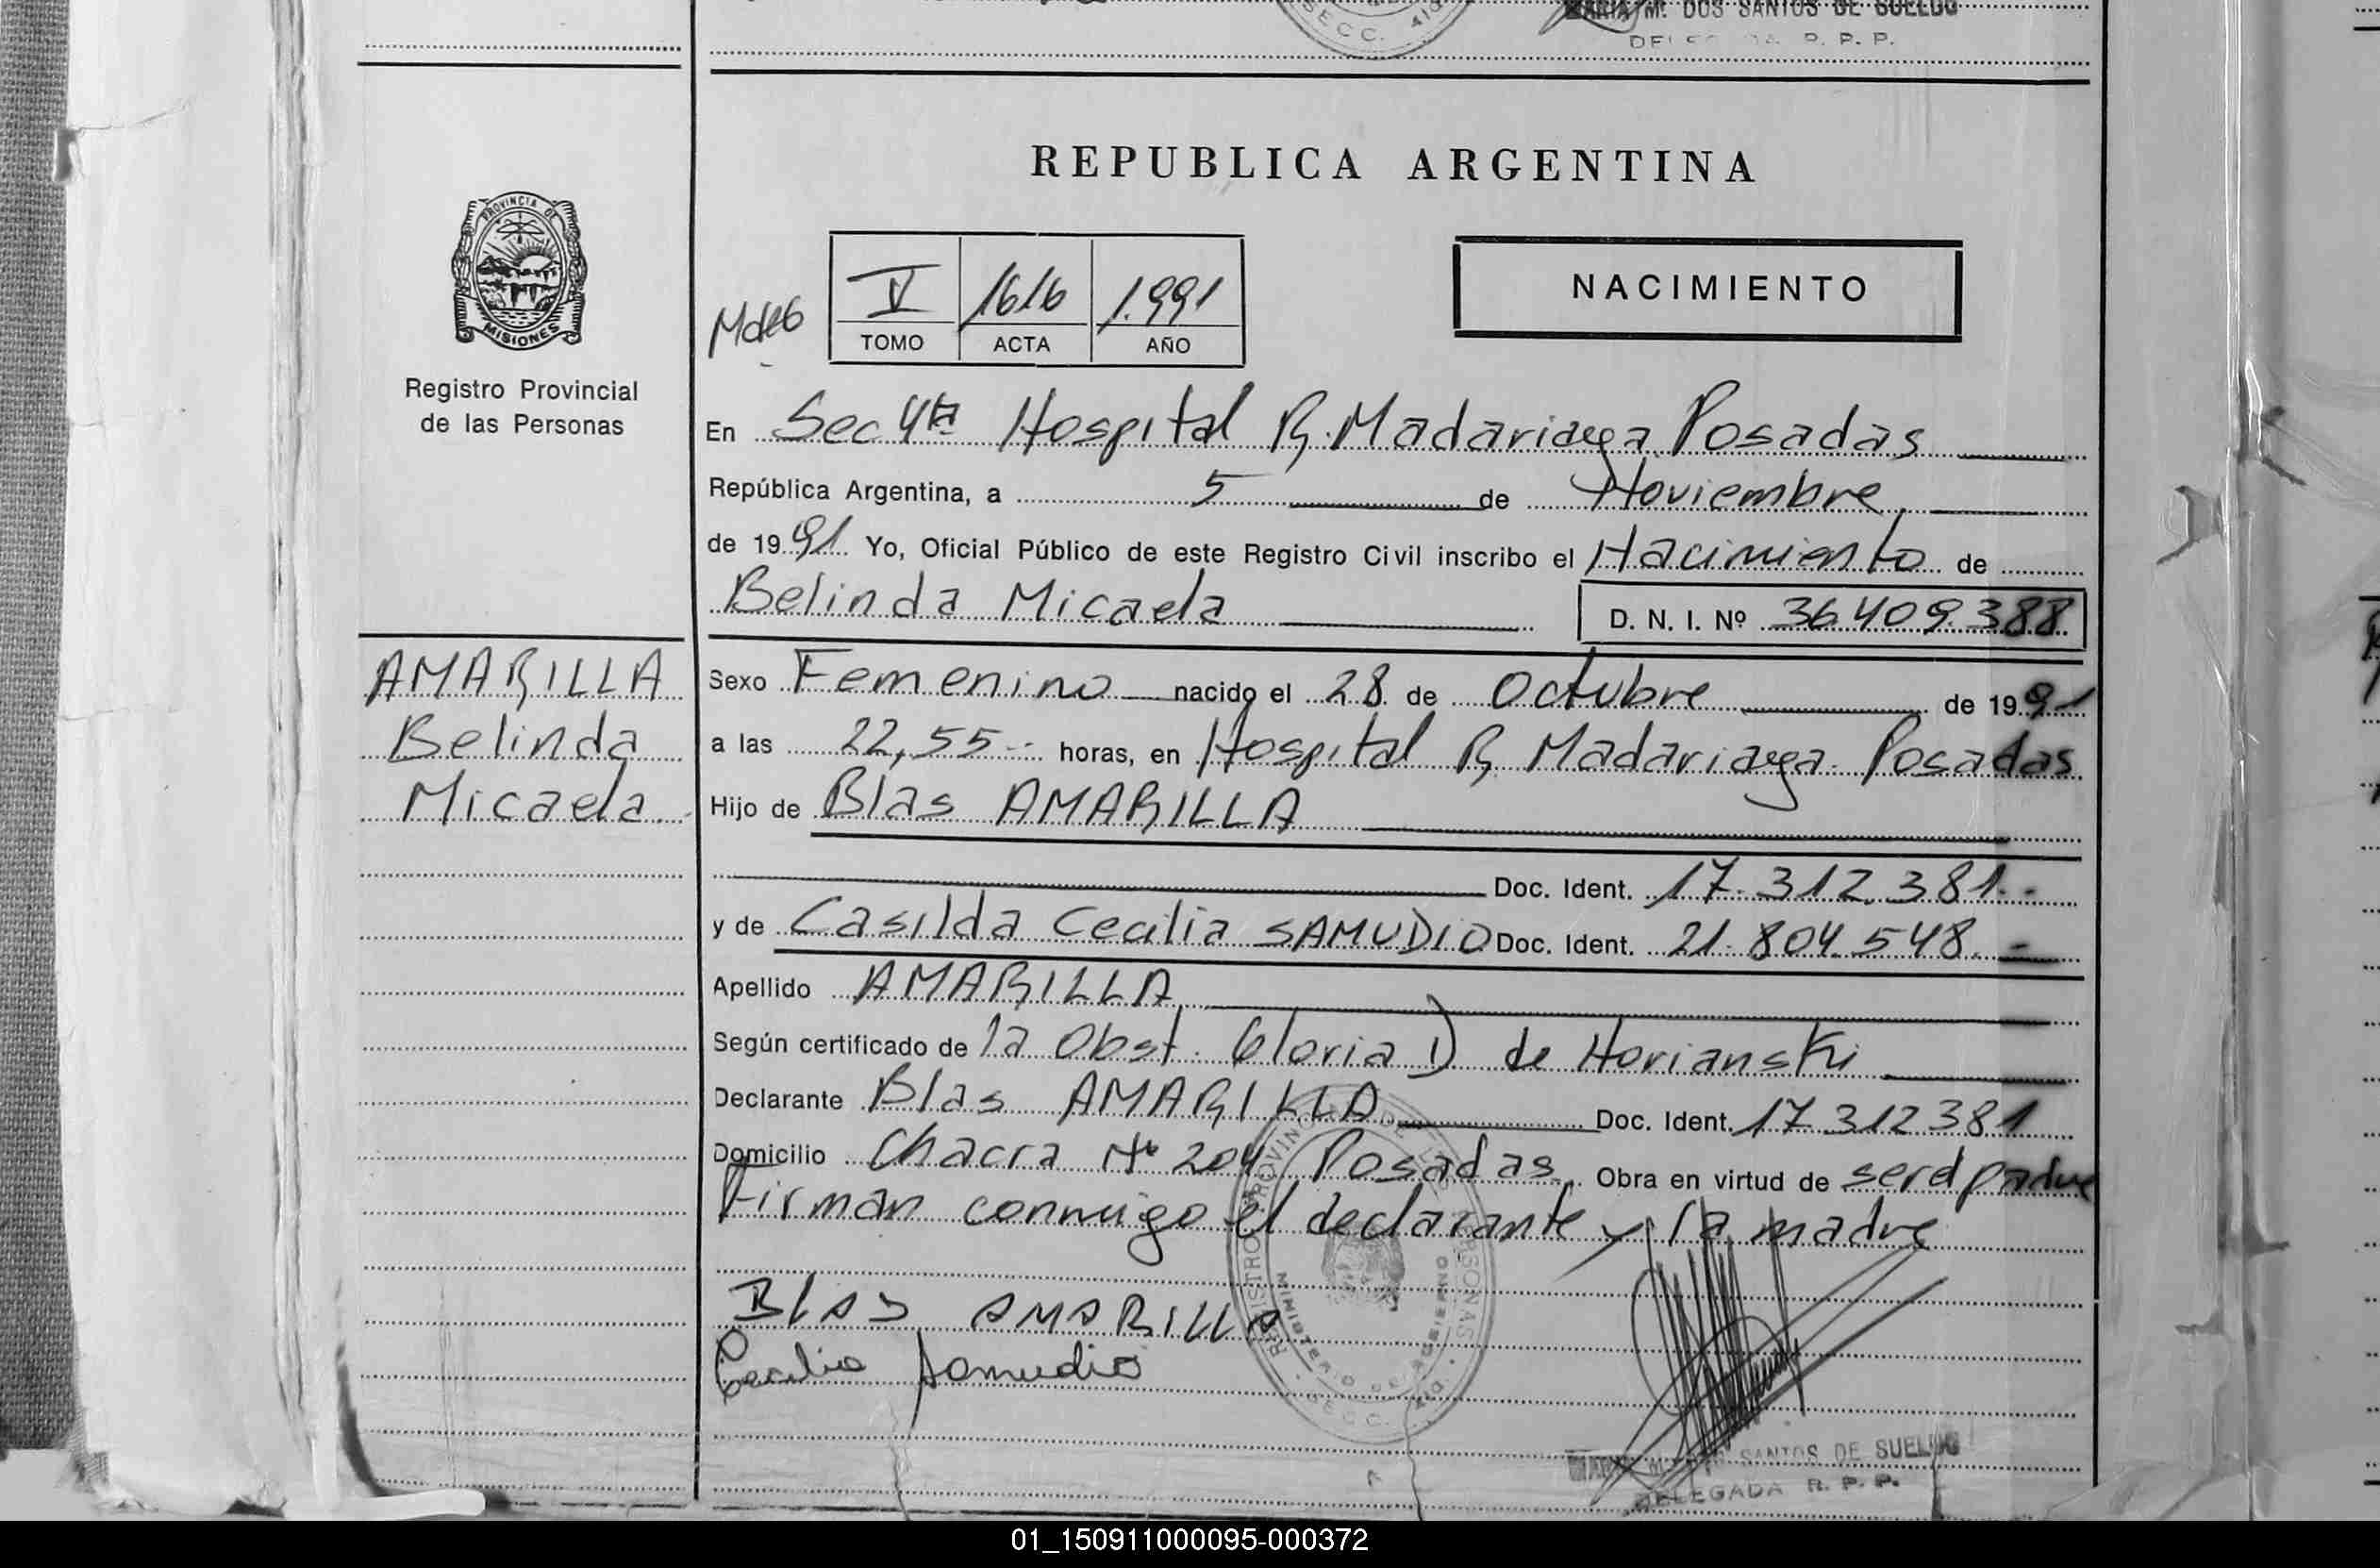 MARIA M. DOS SANTOS DE SUELDO
SECC. 4ta.
R. P. P.
PROVINCIA DE
MISIONES
Registro Provincial
de las Personas
AMARILLA
Belinda
Micaela
REPUBLICA ARGENTINA
V 1616 1.991
TOMO ACTA AÑO
NACIMIENTO
En Sec 4ta Hospital R. Madariaga Posadas
República Argentina, a 5 de Noviembre
de 1991 Yo, Oficial Público de este Registro Civil inscribo el Nacimiento de
Belinda Micaela D. N. I. Nº 36.409.388
Sexo Femenino nacido el 28 de Octubre de 1991
a las 22,55 horas, en Hospital R. Madariaga Posadas
Hijo de Blas AMARILLA
Doc. Ident. 17.312.381.-
y de Casilda Cecilia SAMUDIO Doc. Ident. 21.804.548.-
Apellido AMARILLA
Según certificado de la Obst. Gloria D de Horianski
Declarante Blas AMARILLA Doc. Ident. 17.312381
Domicilio Chacra Nº 204 Posadas Obra en virtud de ser el padre
Firman conmigo el declarante y la madre
BLAS AMARILLA
Cecilia Samudio
REGISTRO PROVINCIAL DE LAS PERSONAS
MINISTERIO DE GOBIERNO
SECC. 4ta.
MARIA M. DOS SANTOS DE SUELDO
DELEGADA R. P. P.
01_150911000095-000372